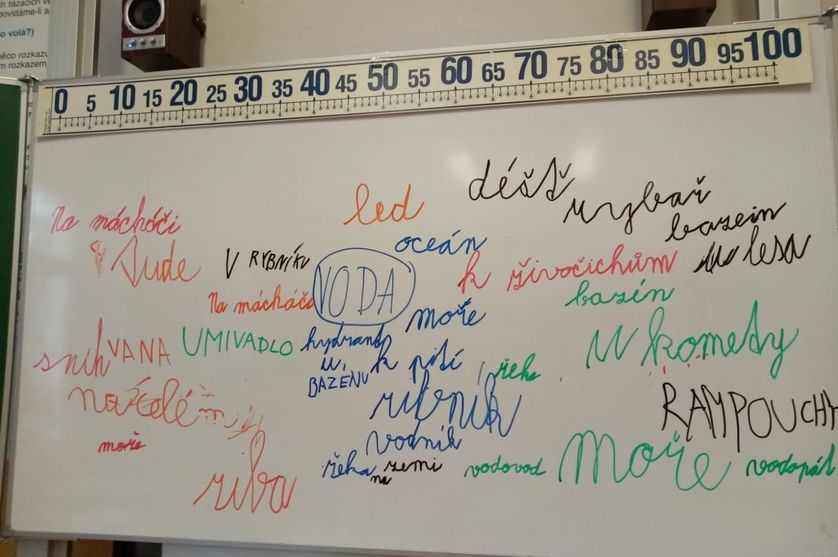 povídáme-li a
o volá?)
ěco rozkazu
m rozkazem
0 5 10 15 20 25 30 35 40 45 50 55 60 65 70 75 80 85 90 95 100
déšť
rybař
led
Na máchóči
bazein
oceán
V RYBNÍKU
VODA
k živočichům
u lesa
Na mácháči
bazén
moře
UMIVADLO
hydrant
sníh
VANA
k pití
U komety
u
BAZÉNU
řeka
ribník
RAMPOUCHY
vodník
moře
moře
řeka
na zemi
vodovod
vodopád
riba